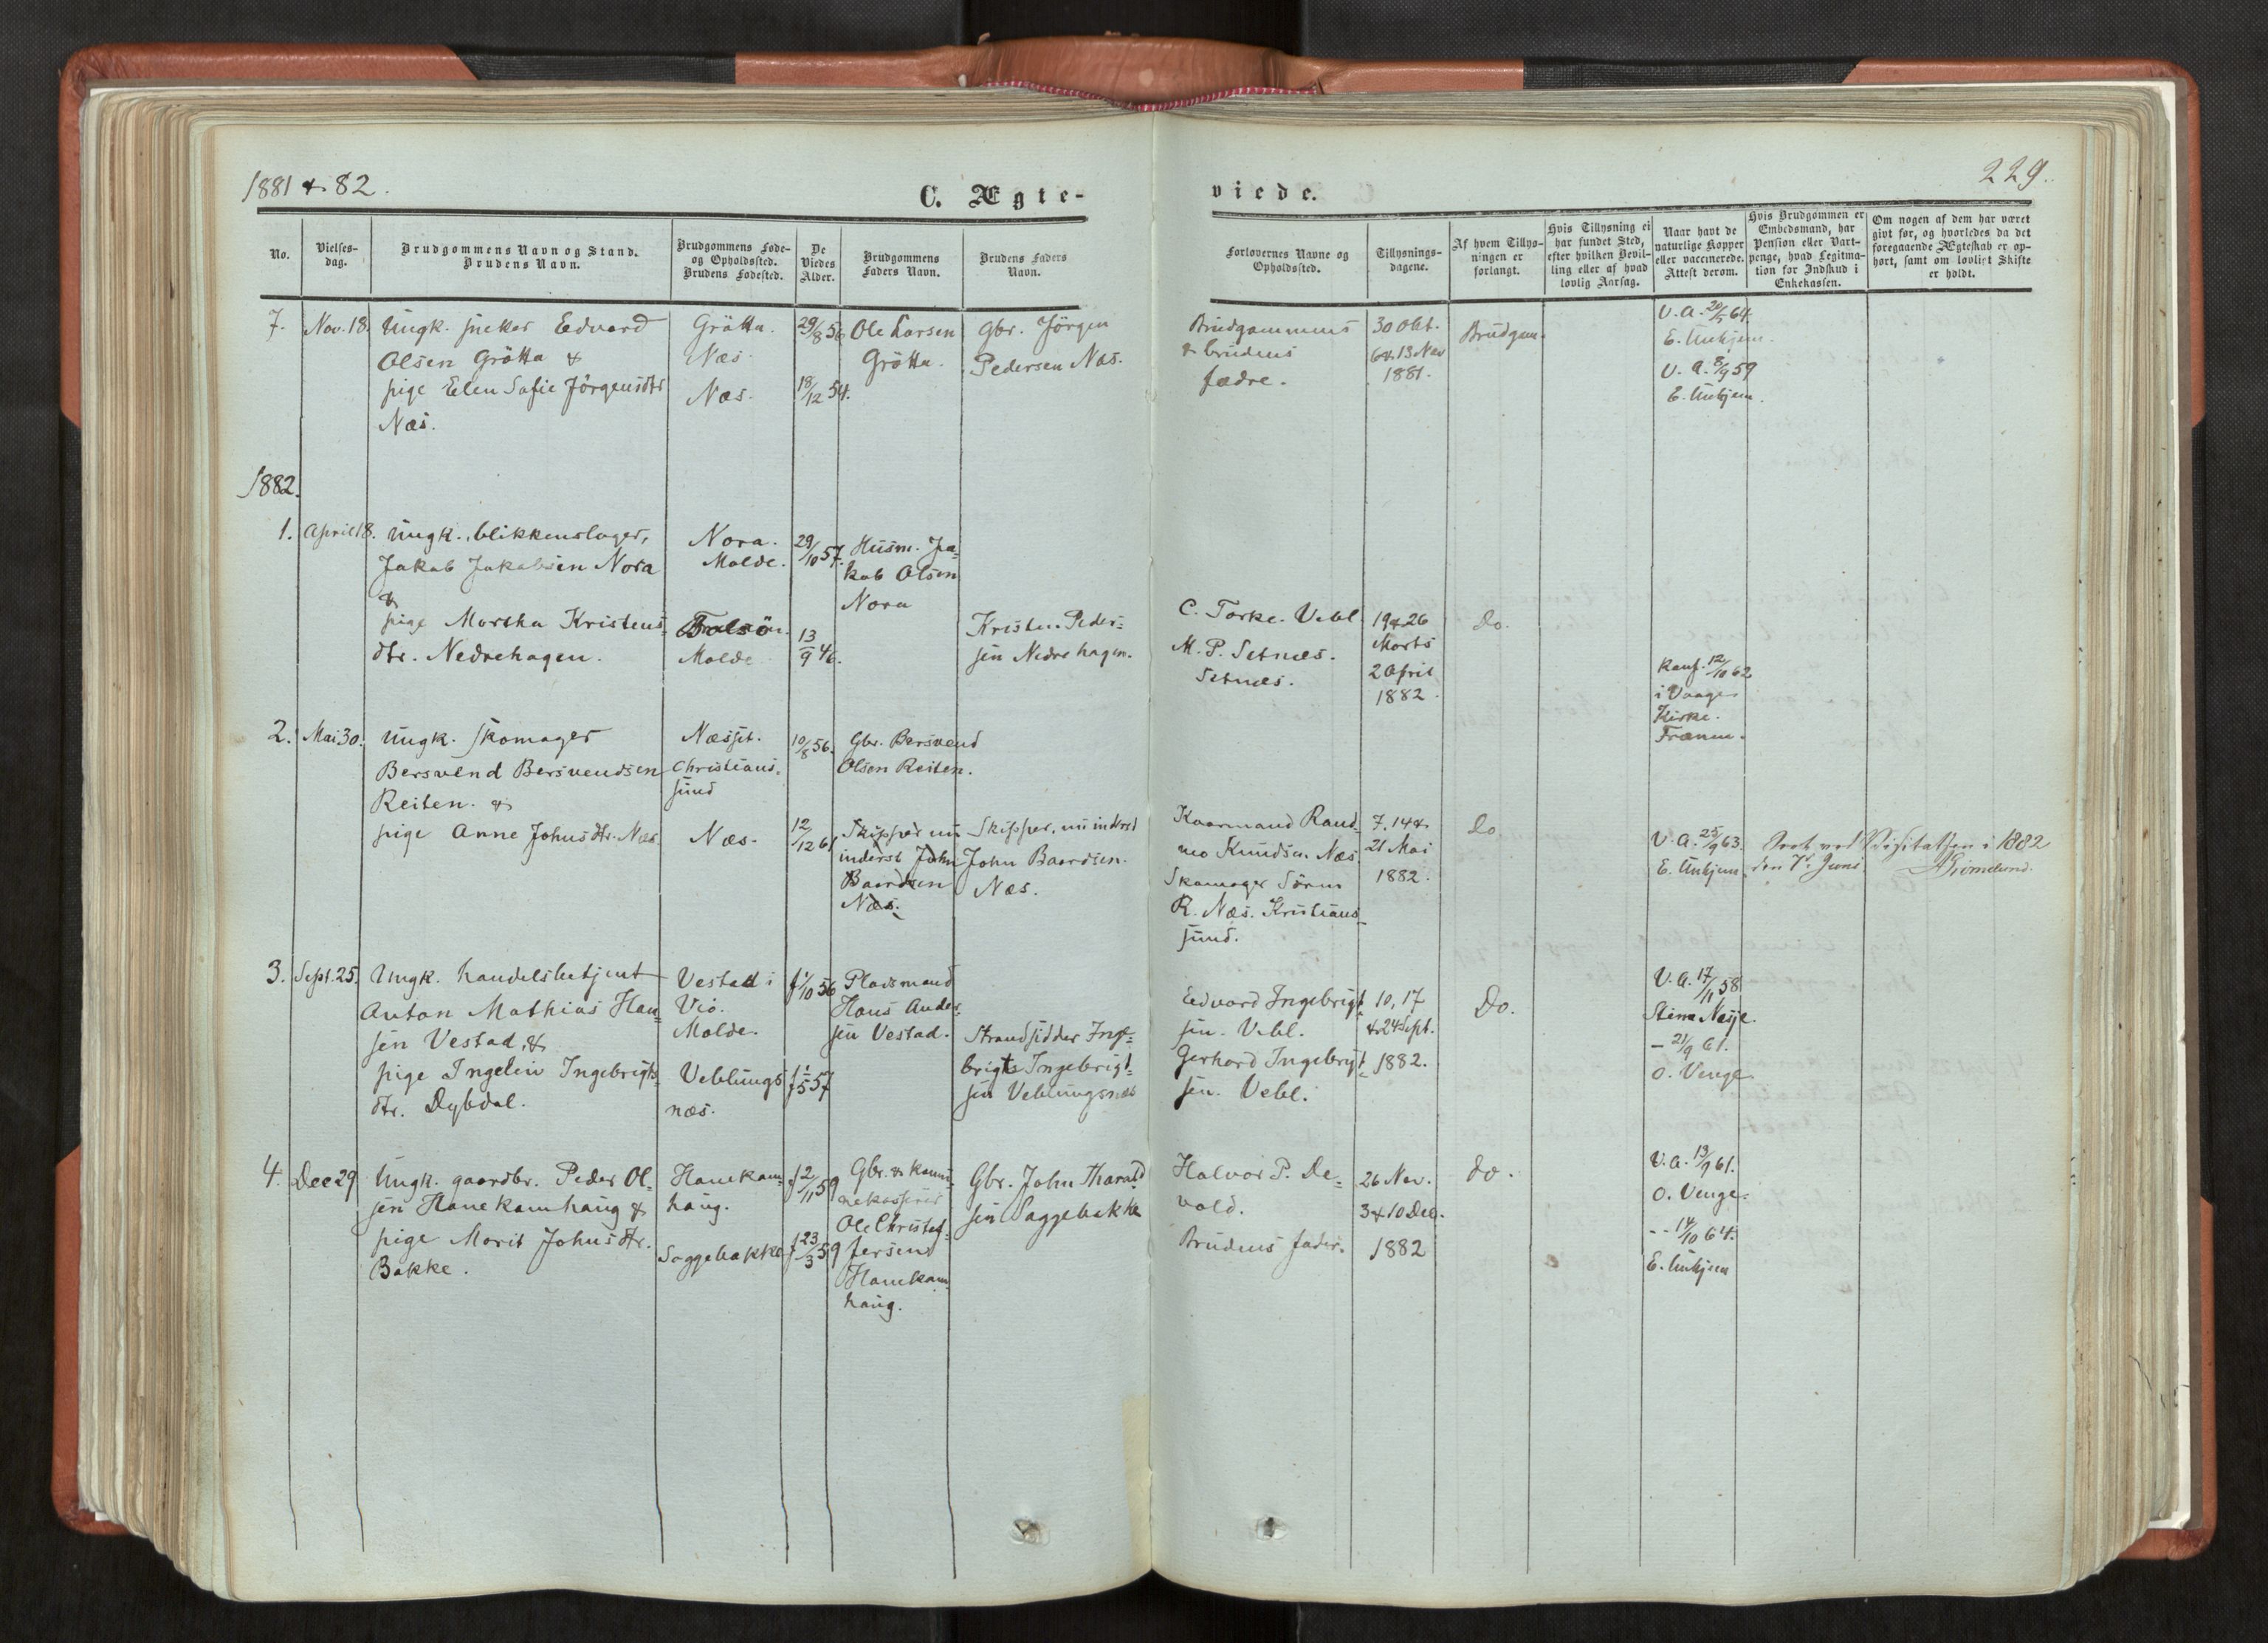 1881 & 82.
C. Ægte-
viede.
229.
No.
Vielses-
dag.
Brudgommens Navn og Stand.
Brudens Navn.
Brudgommens Føde-
og Opholdssted.
Brudens Fødested.
De
Viedes
Alder.
Brudgommens
Faders Navn.
Brudens Faders
Navn.
Forlovernes Navne og
Opholdssted.
Tillysnings-
dagene.
Af hvem Tillys-
ningen er
forlangt.
Hvis Tillysning ei
har fundet Sted,
efter hvilken Bevil-
ling eller af hvad
lovlig Aarsag.
Naar havt de
naturlige Kopper
eller vaccinerede.
Attest derom.
Hvis Brudgommen er
Embedsmand, har
Pension eller Vart-
penge, hvad Legitima-
tion for Indskud i
Enkekassen.
Om nogen af dem har været
givt før, og hvorledes da det
foregaaende Ægteskab er op-
hørt, samt om lovligt Skifte
er holdt.
7.
Nov. 18.
Ungk. Edvard
Olsen Grötta &
pige Elen Sofie Jörgensdtr
Næs.
Grötta.
Næs.
Næs.
29/8 56
18/12 54.
Ole Larsen
Grötta.
Gbr. Jörgen
Pedersen Næs.
Brudgommens
& brudens
fædre.
30 Okt.
6 & 13 Nov
1881.
Brudgom.
V. A. 64.
E. Unhjem.
V. A. 8/9 59
E. Unhjem.
1882.
1.
April 18.
Ungk., blikkenslager,
Jakob Jakobsen Nora
&
pige Martha Kristens-
dtr. Nedrehagen.
Nora.
Molde.
Bolsö.
Molde
29/10 57.
13/9 46.
Husm. Ja-
kob Olsen
Nora
Kristen Peder-
sen Nedrehagen.
C. Torke. Vebl.
M. P. Setnes.
Setnes.
19 & 26
Marts
2 April
1882.
Do.
Konf. 12/10 62
i Vaage
Kirke.
Frænen.
2.
Mai 30.
Ungk. skomager
Bersvend Bersvendsen
Reiten. &
pige Anne Johnsdtr. Næs
Næsset.
Christians-
sund
Næs.
10/8 56.
12/12 61
Gbr. Bersvend
Olsen Reiten.
Skipper nu
inderst John
Baardsen
Næs.
Skipper, nu inderst
John Baardsen.
Næs.
Kaarmand Rand-
mo Knudsen Næs.
Skomager Sören
R. Næs. Kristians-
sund.
7. 14 &
21 Mai
1882.
Do.
V. A. 25/9 63.
E. Unhjem.
Seet ved Visitatsen i 1882
den 7de Juni.
3.
Sept. 25.
Ungk. handelsbetjent
Anton Mathias Han-
sen Vestad. &
pige Ingelin Ingebrigts-
dtr. Dybdal.
Vestad i
Viö.
Molde.
Veblungs
næs.
f 1/10 56
f 1/5 57
Pladsmand
Hans Ander-
sen Vestad.
Strandsidder Inge-
brigts Ingebrigt-
sen Veblungsnæs
Edvard Ingebrigt-
sen. Vebl.
Gerhard Ingebrigt-
sen. Vebl.
10, 17
& 24 Sept.
1882.
Do.
V. A. 17/11 58
Stina Nesje.
- 21/9 61.
O. Venge
4.
Dec 29
Ungk. gaardbr. Peder Ol-
sen Hanekamhaug &
pige Marit Johnsdtr.
Bakke.
Hanekam-
haug.
Soggebakke
f 2/11 59
f 23/3 59
Gbr. & kom-
nekasserer
Ole Christof-
fersen
Hanekam-
haug.
Gbr. John Tharald
sen Soggebakke
Halvor P. De-
vold.
Brudens fader.
26 Nov.
3 & 10 Dec.
1882
do.
V. A. 13/9 61.
O. Venge.
- - 14/10 64.
E. Unhjem